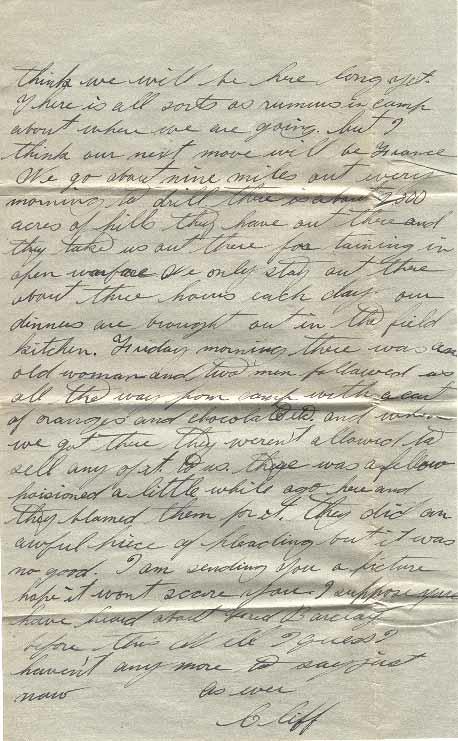 think we will be here long yet.
There is all sorts os rumurs in camp
about where we are going. but I
think our next move will be France
We go about nine miles out every
morning to drill there is about 2000
acres of hills they have out there and
they take us out there for taining in
open warfare We only stay out there
about three hours each day our
dinners are brought out in the field
kitchen. Friday morning there was an
old woman and two men followed us
all the way from camp with a cart
of oranges and chocolate etc. and when
we got there they weren't allowed to
sell any of it to us. there was a fellow
poisioned a little while ago here and
they blamed them for it. They did an
awful piece of pleading but it was
no good. I am sending you a picture
hope it wont scare you. I suppose you
have heard about Barclay
before this Well I guess I
haven't any more to say just
now as ever
Cliff